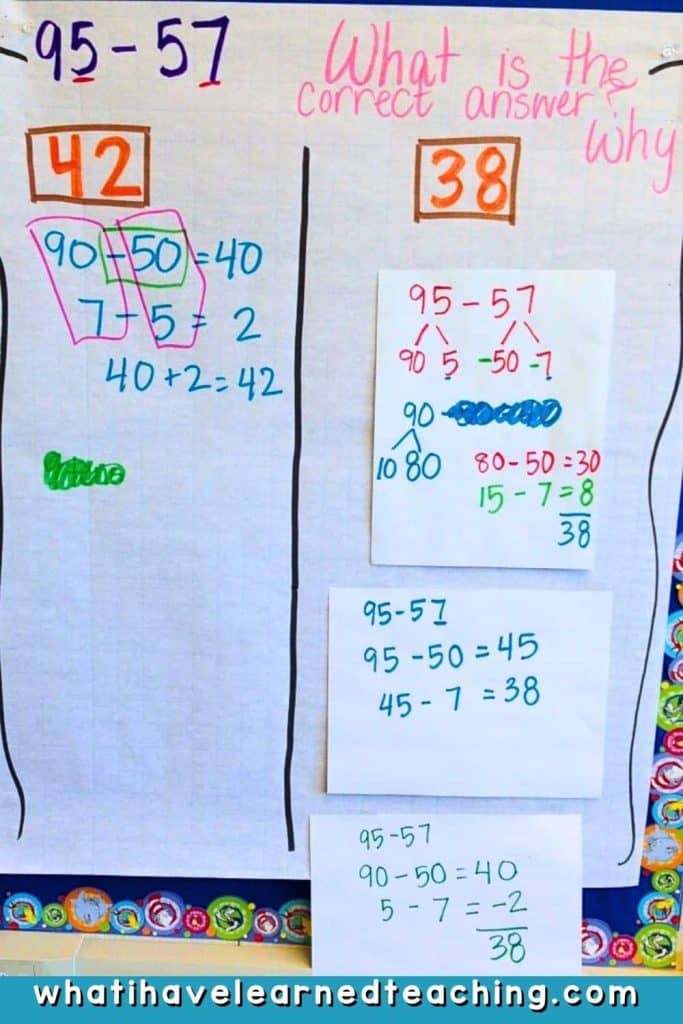 95-57
What is the
correct answer?
Why
42
90-50=40
7-5=2
40+2=42
38
95-57
90 5 -50 -7
90
10 80
80-50=30
15-7=8
38
95-57
95-50=45
45-7=38
95-57
90-50=40
5-7=-2
38
whatihavelearnedteaching.com